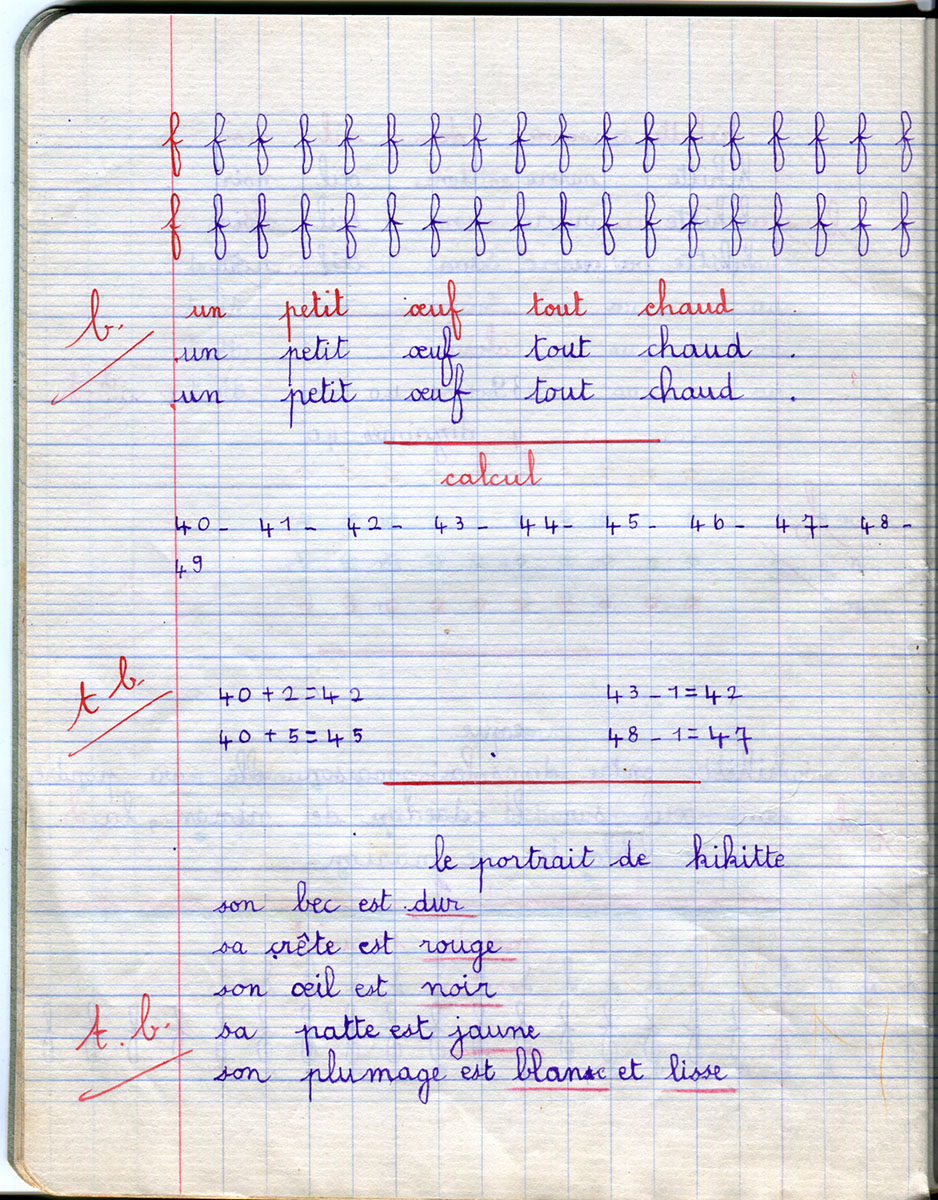 f f f f f f f f f f f f f f f f f f
f f f f f f f f f f f f f f f f f f
b. un petit œuf tout chaud
un petit œuf tout chaud .
un petit œuf tout chaud .
calcul
40 - 41 - 42 - 43 - 44 - 45 - 46 - 47 - 48 -
49
t b.
40 + 2 = 42 43 - 1 = 42
40 + 5 = 45 48 - 1 = 47
le portrait de kikitte
son bec est dur
sa crête est rouge
son œil est noir
t. b. sa patte est jaune
son plumage est blanc et lisse